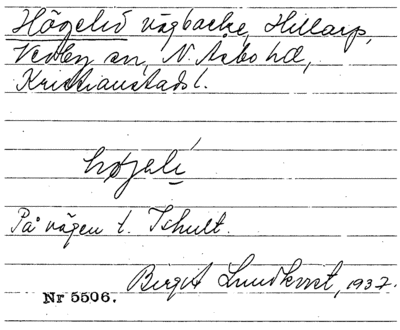 Högelid vägbacke, Hillarp,
Vedby sn, N. Åsbo hd,
Kristianstads l.
højali
På vägen t. Ishult.
Birgit Lundkvist, 1937.
Nr 5506.